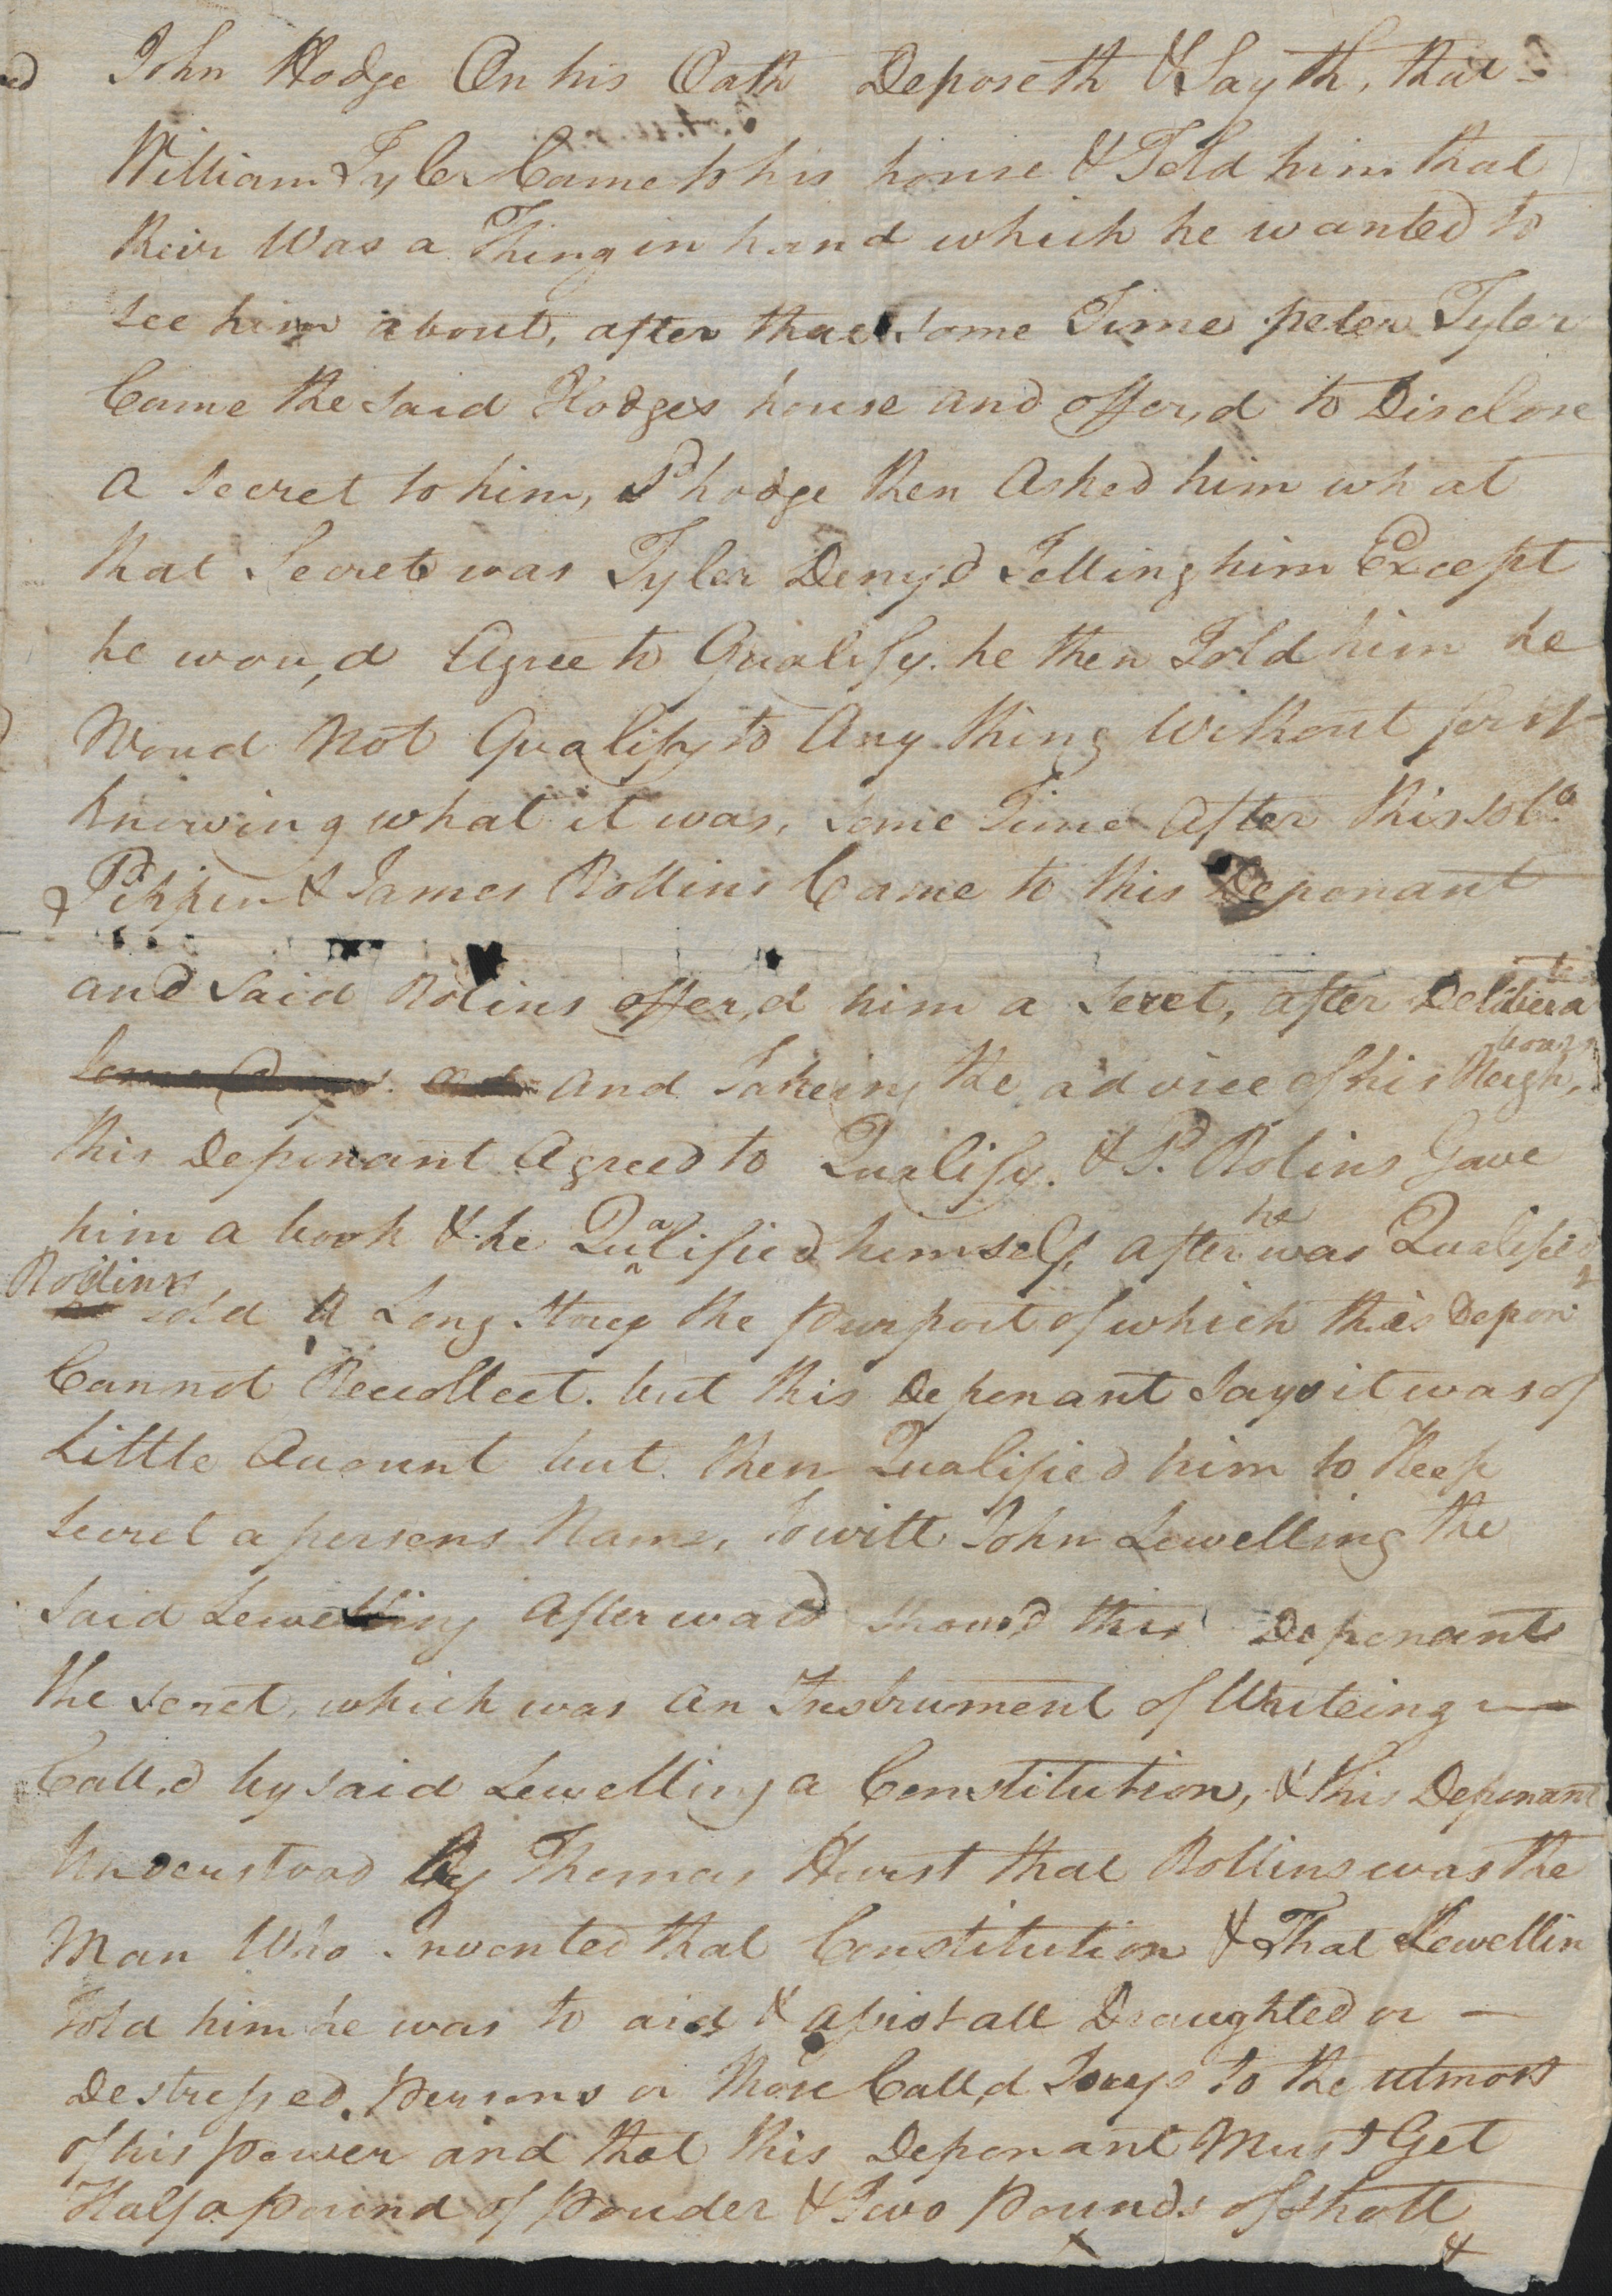 John Hodge On his Oath Deposeth & Sayth, that
William Tyler Came to his house & Told him that
their Was a Thing in hand which he wanted to
see him about, after that some Time peter Tyler
Came the said Hodges house and offer,d to Disclose
a secret to him, Sd hodge then Asked him what
that Secret was Tyler Deny,d Telling him Except
he wou,d Agree to Qualify. he then Told him he
Woud Not Qualify to Any thing Without first
knowing what it was, some Time After this
Pippin & James Rollins Came to this Deponant
and said Rolins offer,d him a secret, after Delibera
te
and Takeing the advice of his Neigh,
bours
this Deponant Agreed to Qualify. & Sd. Rolins Gave
him a book & he Qualified himself, after he was Qualified
Rollins told A Long Storey the purport of which this Depon
Cannot Recollect. but this Deponant Says it was of
Little Account but then Qualified him to Keep
secret a persons Name, towitt John Lewelling the
said Lewelling Afterward show,d this Deponant
the secret, which was an Instrument of Writeing —
Call,d by said Lewelling a Constitution, & this Deponant
Understood By Thomas Hurst that Rollins was the
Man Who Invented that Constitution & That Lewellin
told him he was to aid & assist all Draughted or —
Destressed persons or those Call,d Toreys to the utmost
of his power and that this Deponant Must Get
Half a pound of pouder & Two pounds of shott